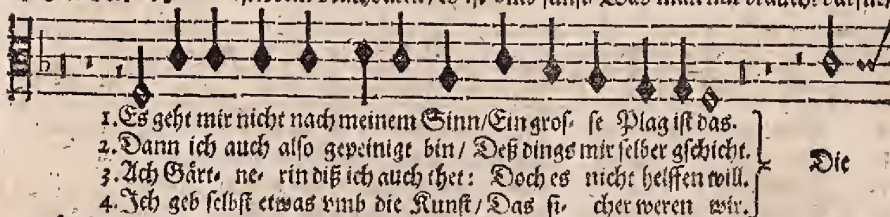 1. Es geht mir nicht nach meinem Sinn/Ein gros- se Plag ist das.
2. Dann ich auch also gepeinige bin/ Deß dings mir selber gschicht.
3. Ach Gärt- ne- rin diß ich auch thet: Doch es nicht helffen will.
Die
4. Ich geb selbst etwas vmb die Kunst/Das si- cher weren wir.